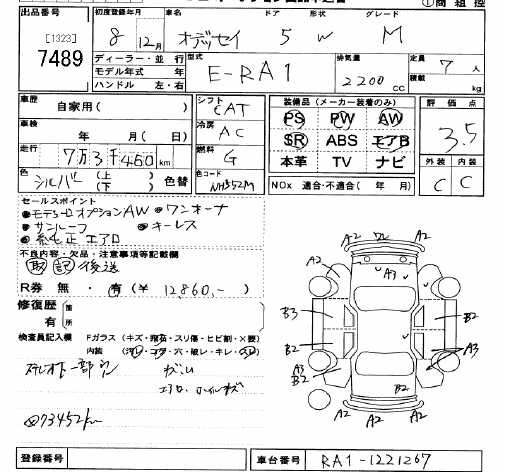 ① 商 組 控
出品番号 初度登録年月 車名 ドア 形状 グレード
[1323] 8年 12月 オデッセイ 5 W M
7489
ディーラー・並 行 型式 排気量 定員 7人
モデル年式 年 E-RA1 2200cc 積載 kg
ハンドル 左・右
車歴 自家用( ) シフト CAT 装備品(メーカー装着のみ) 評 価 点
車検 年 月( 日) 冷房 AC PS PW AW 3.5
走行 7万3千450km 燃料 G SR ABS エアB 外装 内装
本革 TV ナビ C C
色 シルバー (上 )(下 ) 色替 色コード NH552M NOx 適合・不適合( 年 月)
セールスポイント
●モデューロオプションAW ●ワンオーナ
●サンルーフ ●キーレス
●純正エアロ
不良内容・欠品・注意事項等記載欄
取 記 後送
R券 無・有(¥ 12,860,- )
修復歴 箇所
有
検査員記入欄 Fガラス(キズ・飛石・スリ傷・ヒビ割・×要)
内装 (汚レ・コゲ・穴・破レ・キレ・スレ)
A2 A2
A2 A3 A2
B3 B2
B2 B2
A3 B2 B2 A3
A2 A2 A2
73452km
登録番号 車台番号 RA1-1221267